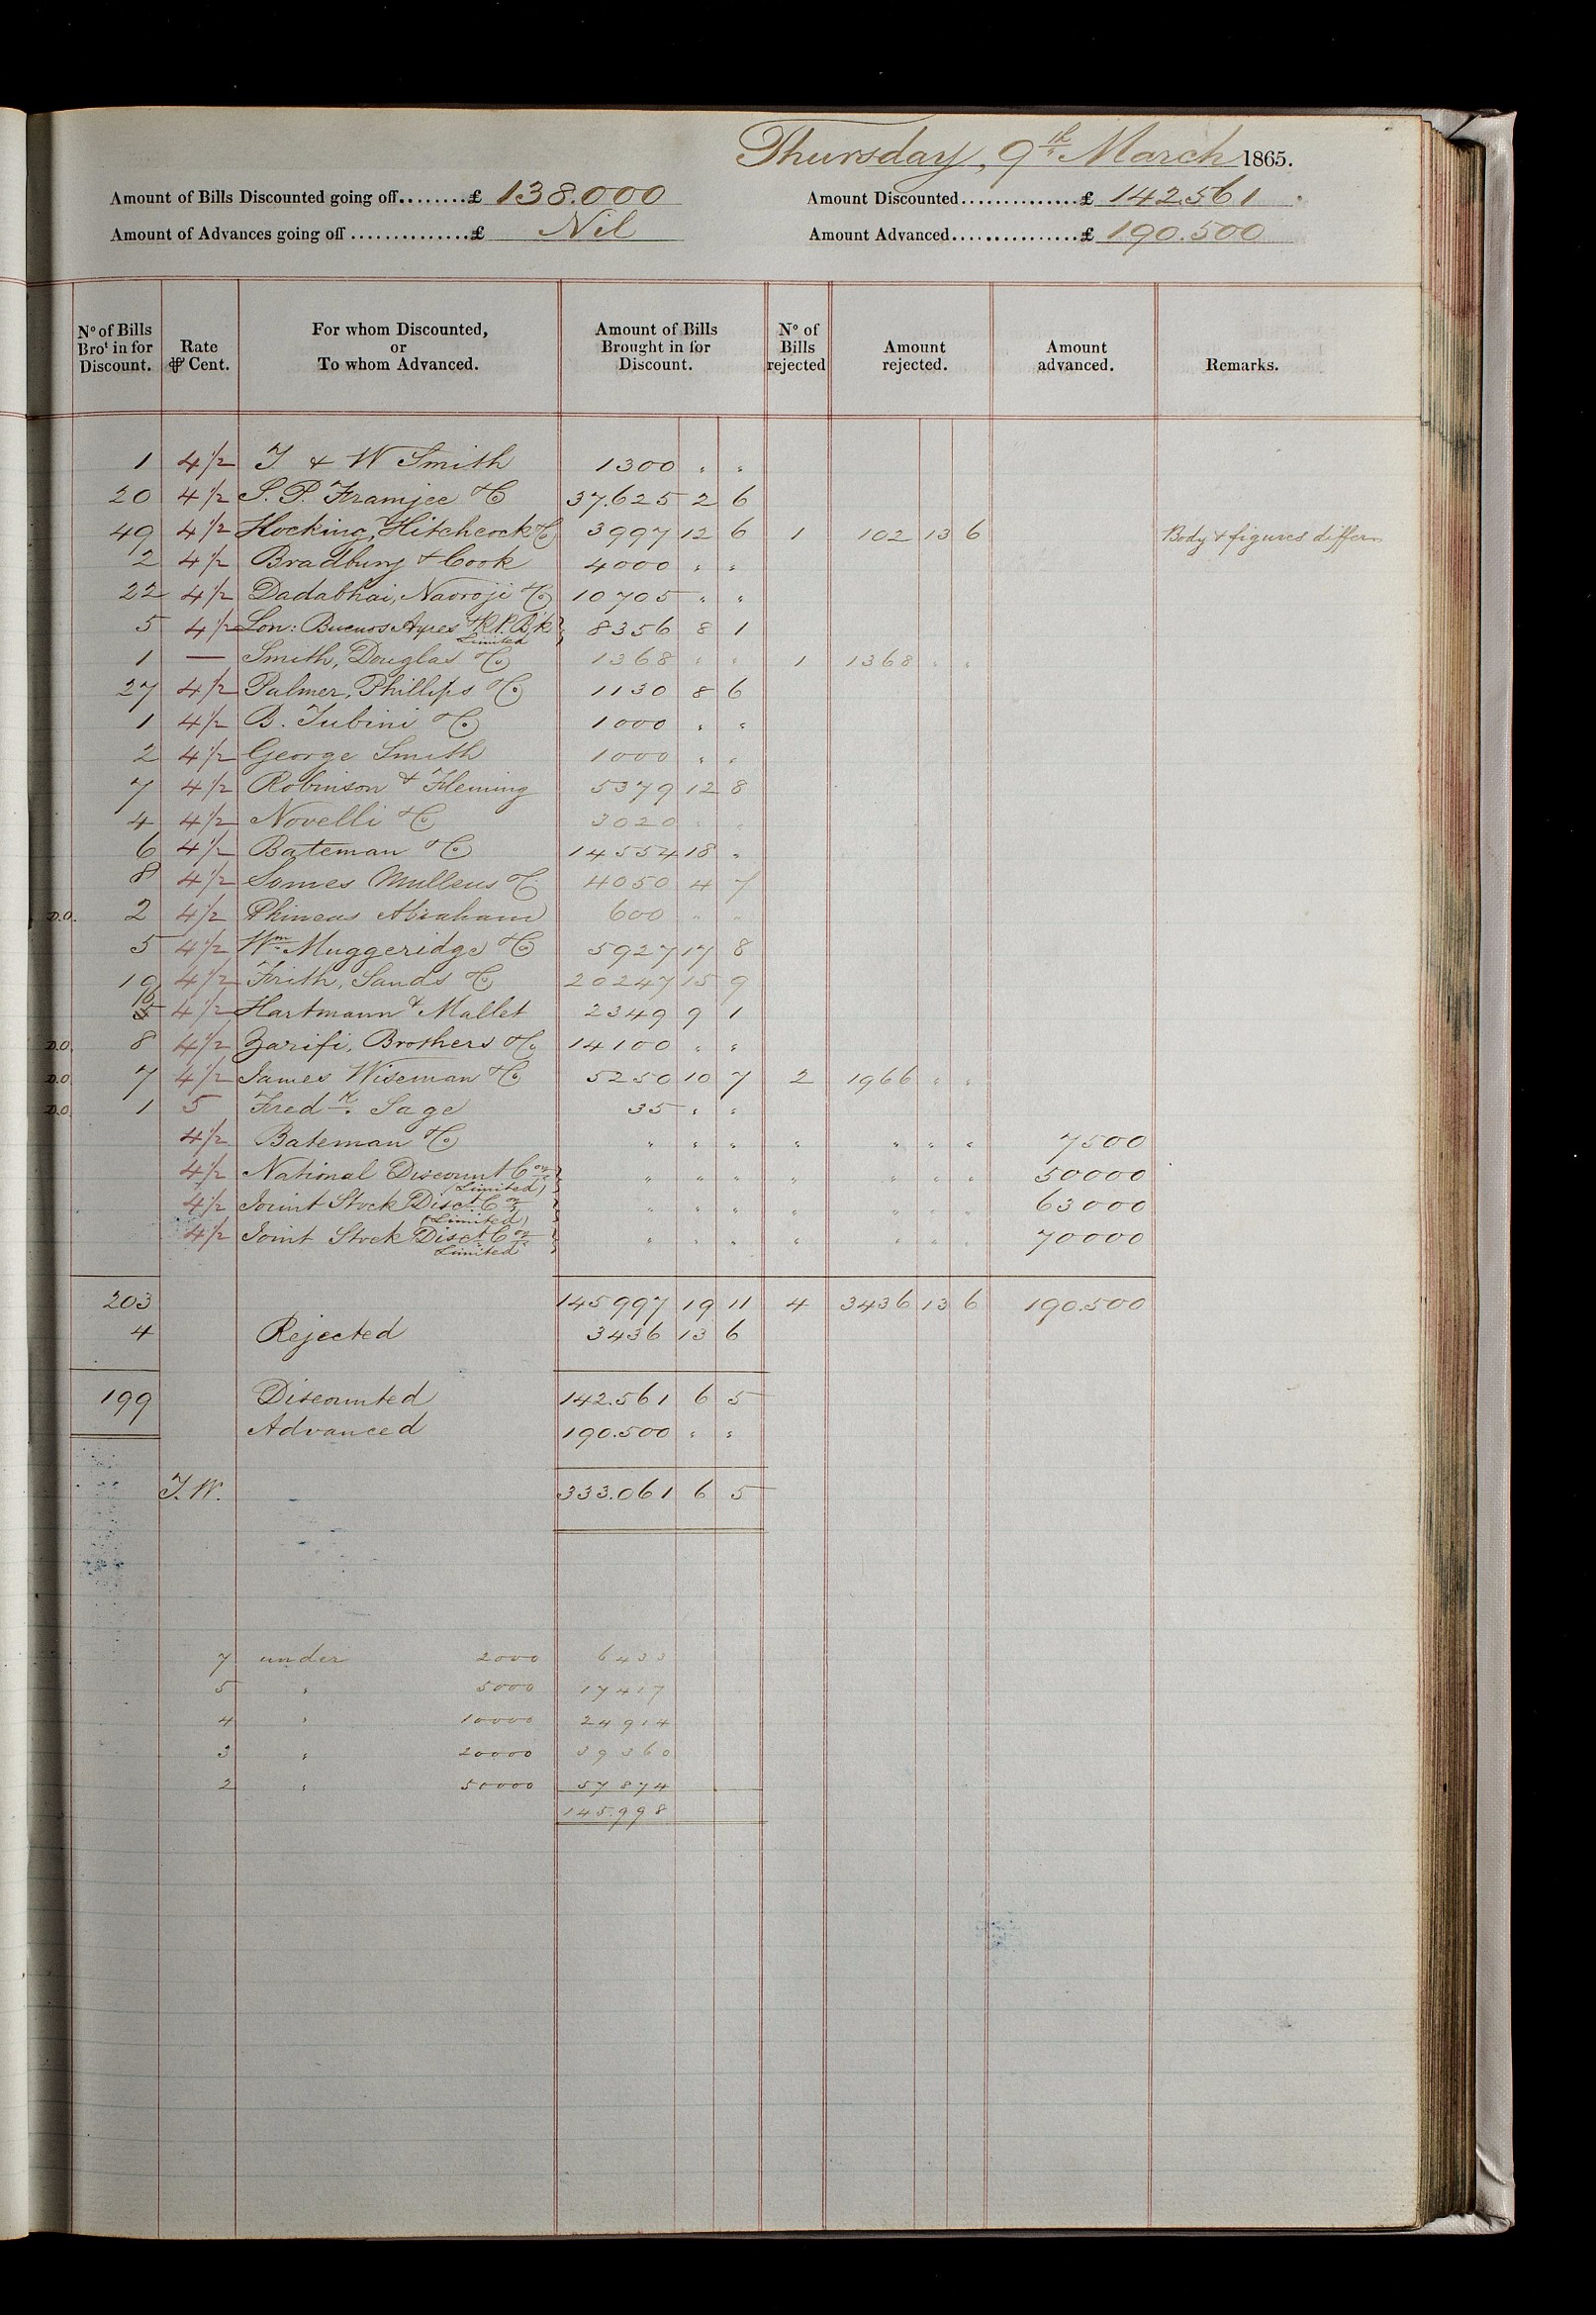 Thursday, 9th March 1865.
Amount of Bills Discounted going off........£ 138.000 Amount Discounted..............£ 142.561
Amount of Advances going off ..............£ Nil Amount Advanced...............£ 190.500
No of Bills Brot in for Discount. Rate ⅌ Cent. For whom Discounted, or To whom Advanced. Amount of Bills Brought in for Discount. No of Bills rejected Amount rejected. Amount advanced. Remarks.
1 4½ T & W Smith 1300 " "
20 4½ S. P. Framjee & Co 37.625 2 6
49 4½ Hocking, Hitchcock & Co 3997 12 6 1 102 13 6 Body & figures differ
2 4½ Bradbury & Cook 4000 " "
22 4½ Dadabhai, Naoroji & Co 10705 " "
5 4½ Lon: Buenos Ayres & R.P. B'k Limited 8356 8 1
1 — Smith, Douglas & Co 1368 " " 1 1368 " "
27 4½ Palmer, Phillips & Co 1130 8 6
1 4½ B. Tubini & Co 1000 " "
2 4½ George Smith 1000 " "
7 4½ Robinson & Fleming 5379 12 8
4 4½ Novelli & Co 3020 " "
6 4½ Bateman & Co 14554 18 "
8 4½ Somes Mullens & Co 4050 4 7
D.O. 2 4½ Phineas Abraham 600 " "
5 4½ Wm Muggeridge & Co 5927 17 8
19 4½ Frith, Sands & Co 20247 15 9
4½ Hartmann & Mallet 2349 9 1
D.O. 8 4½ Zarifi, Brothers & Co 14100 " "
D.O. 7 4½ James Wiseman & Co 5250 10 7 2 1966 " "
D.O. 1 5 Fredk. Sage 35 " "
4½ Bateman & Co " " " " " " " 7500
4½ National Discount Con (Limited) " " " " " " " 50000
4½ Joint Stock Disct. Con (Limited) " " " " " " " 63000
4½ Joint Stock Disct. Con Limited " " " " " " " 70000
203 145997 19 11 4 3436 13 6 190.500
4 Rejected 3436 13 6
199 Discounted 142.561 6 5
Advanced 190.500 " "
T.W. 333.061 6 5
7 under 2000 6433
5 " 5000 17417
4 " 10000 24914
3 " 20000 39360
2 " 50000 57874
145.998